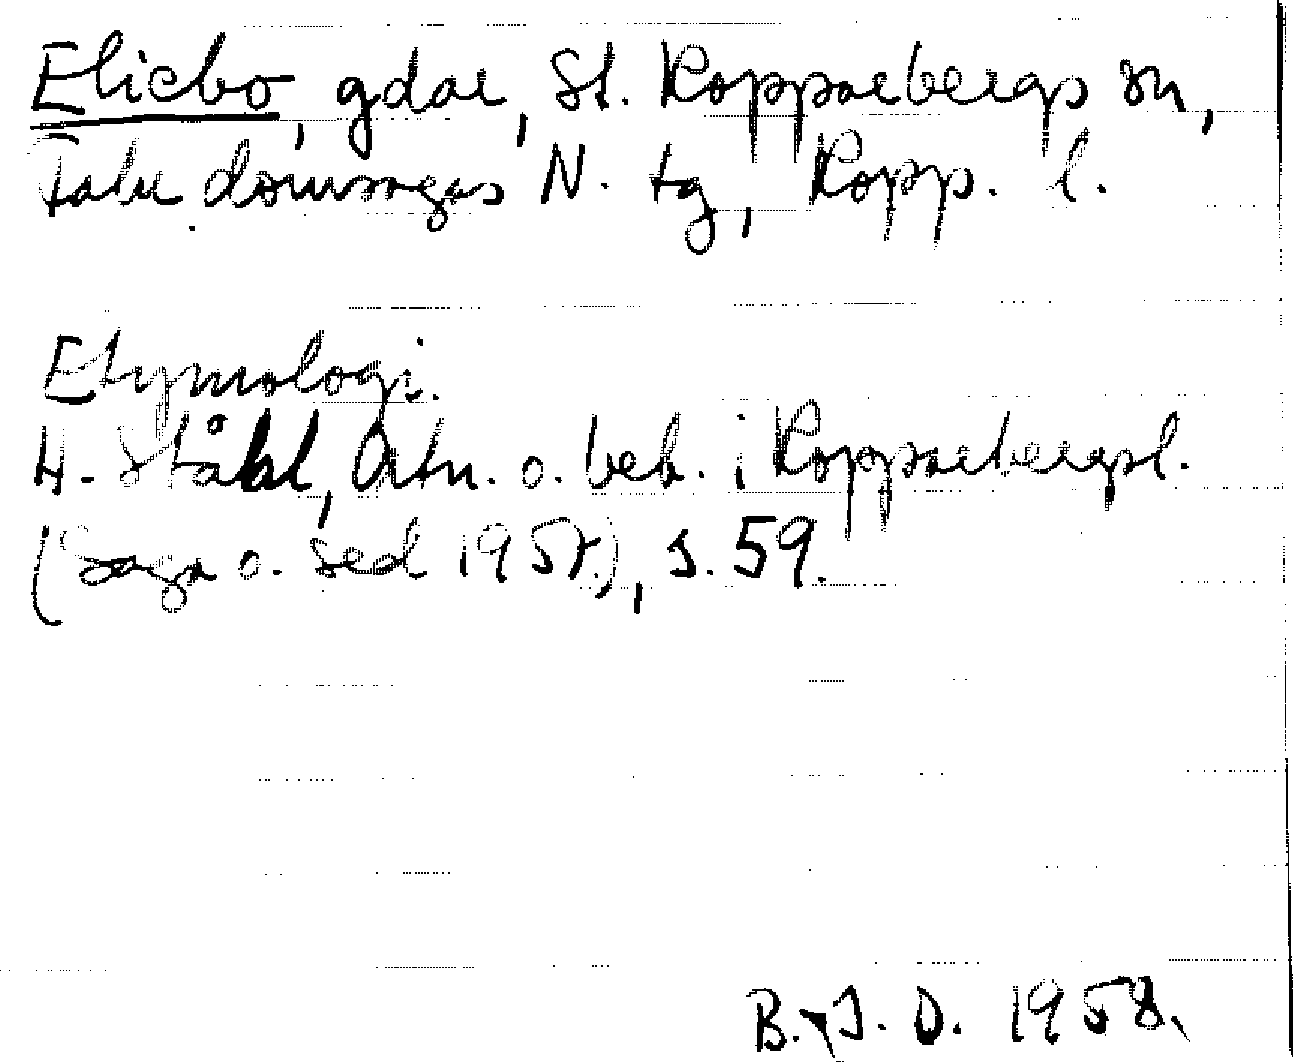 Elicbo, gdar, St. Kopparbergs sn,
Falu domsagas N. tg, Kopp. l.
Etymologi.
H. Ståhl, Ortn. o. beb. i Kopparbergsl.
(Saga o. sed 1957), s. 59.
B.-J. D. 1958.